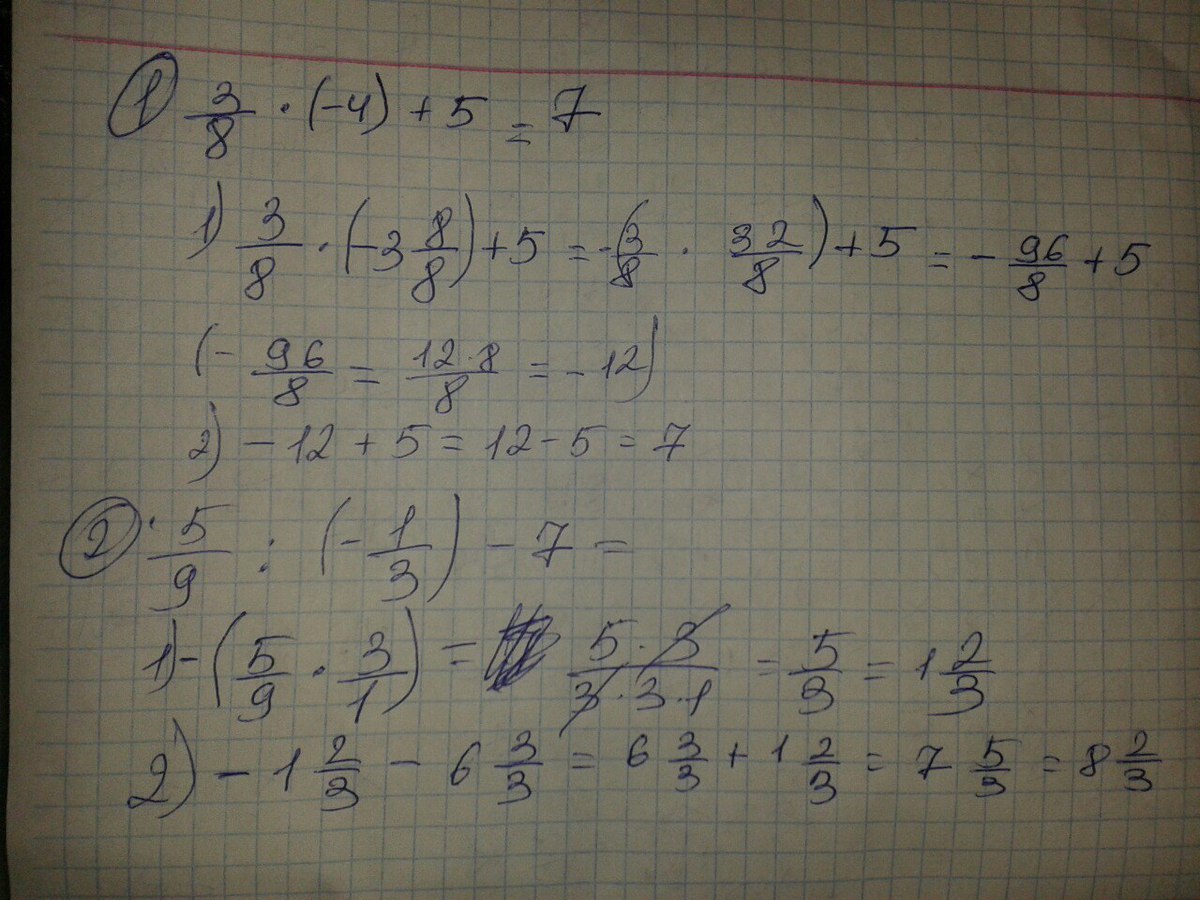 ① 3/8 · (-4) + 5 = 7
1) 3/8 · (-3 8/8) + 5 = -(3/8 · 32/8) + 5 = - 96/8 + 5
(- 96/8 = 12·8/8 = - 12)
2) - 12 + 5 = 12 - 5 = 7
② 5/9 : (- 1/3) - 7 =
1) - (5/9 · 3/1) = 5·3/3·3·1 = 5/3 = 1 2/3
2) - 1 2/3 - 6 3/3 = 6 3/3 + 1 2/3 = 7 5/3 = 8 2/3